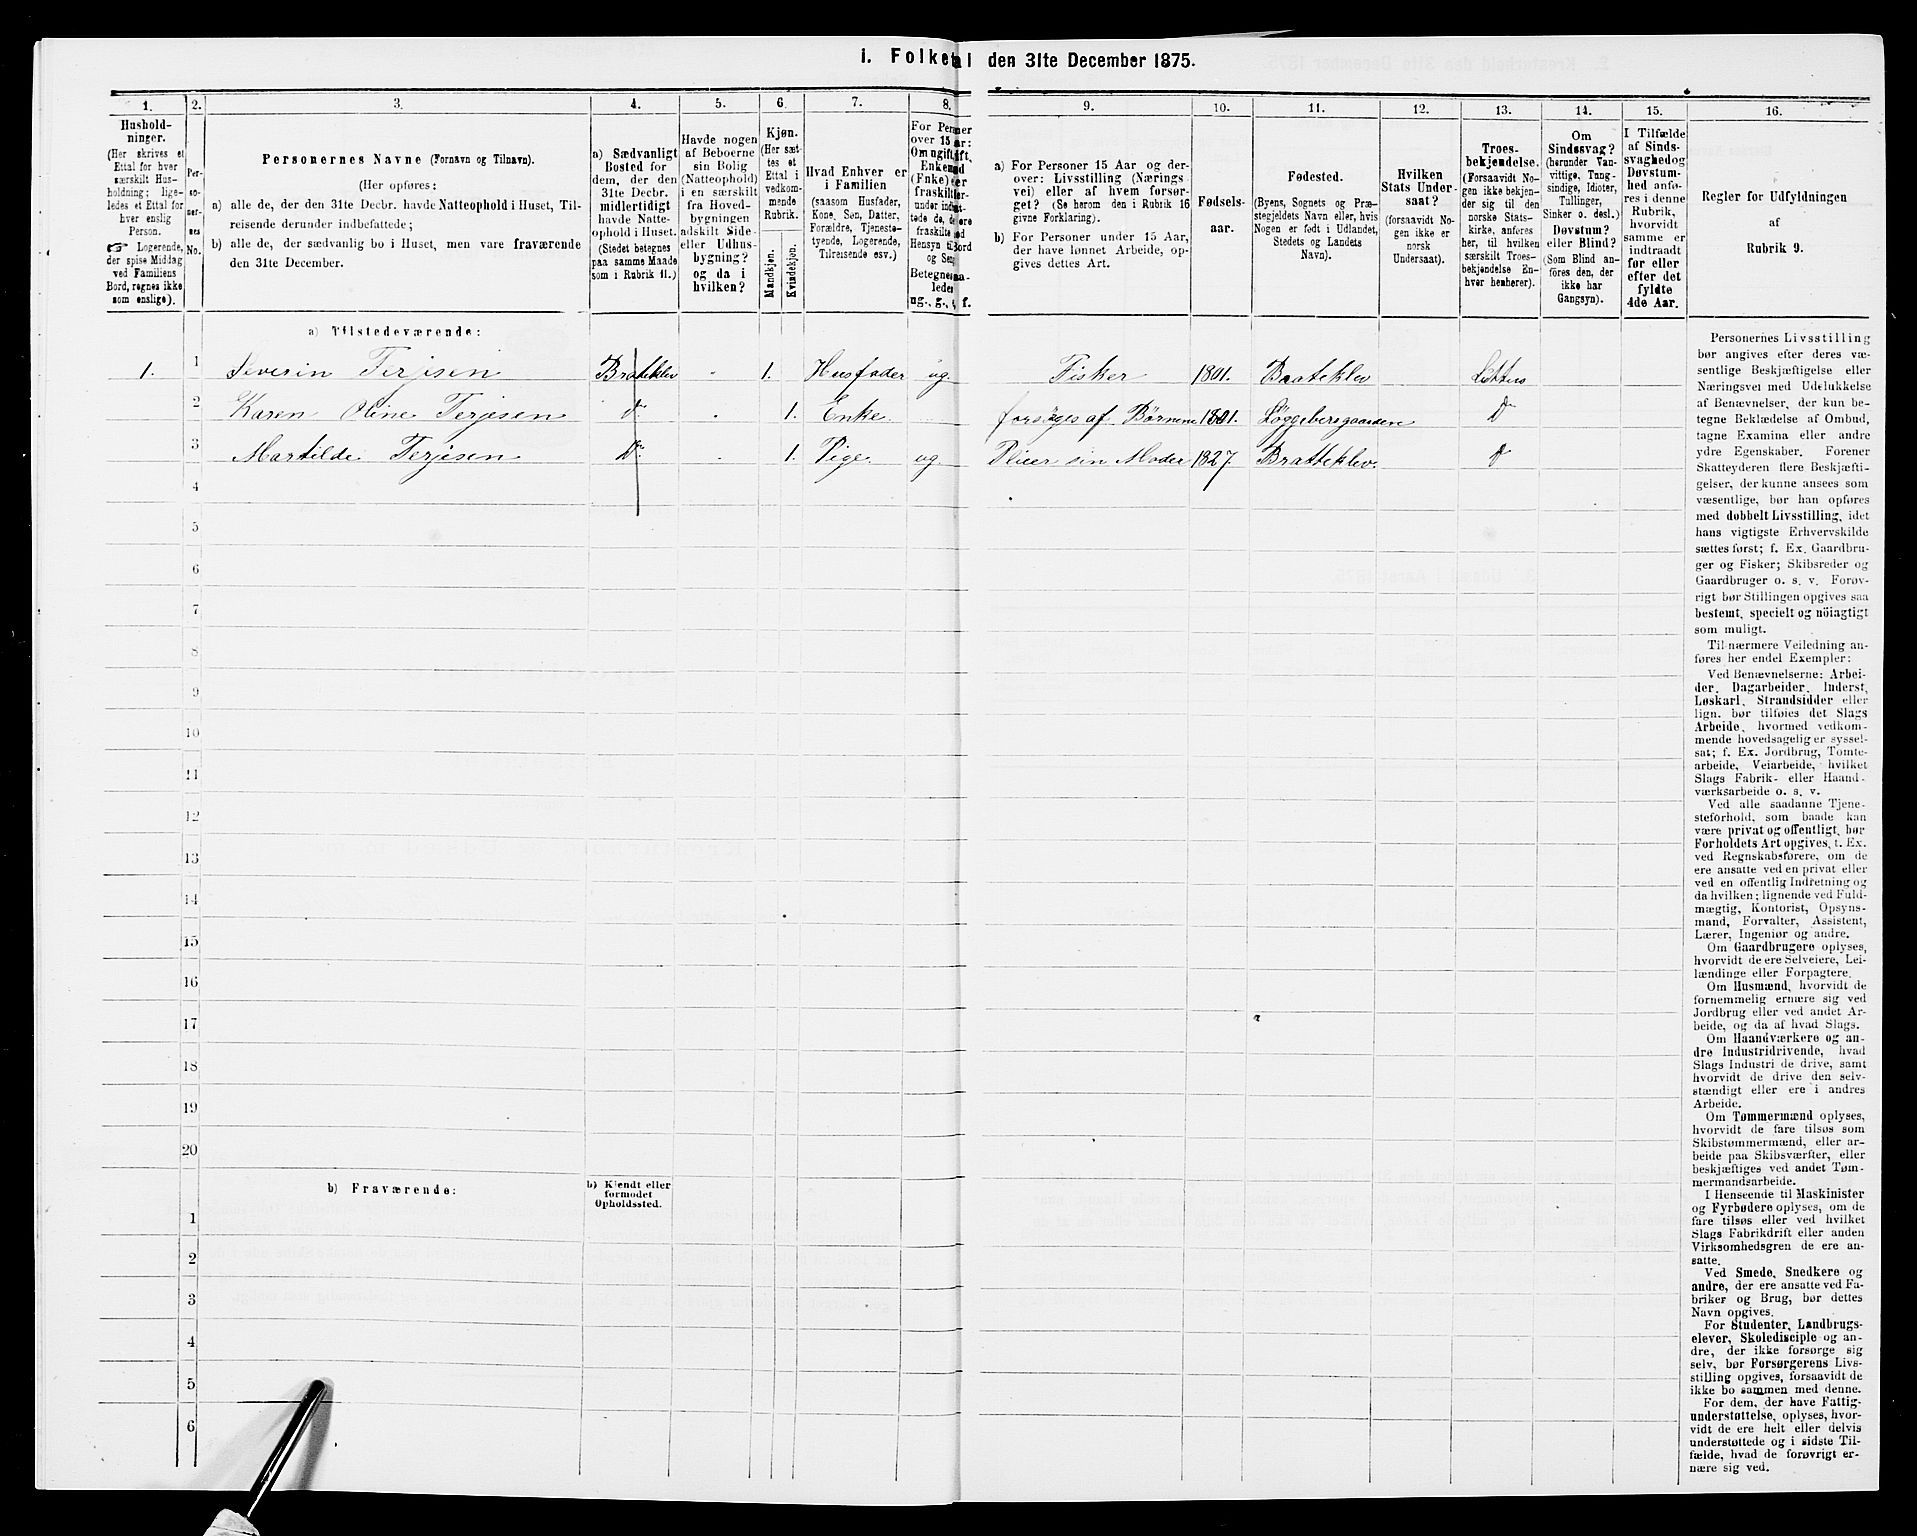 i. Folketal den 31te December 1875.
1. 2. 3. 4. 5. 6. 7. 8. 9. 10. 11. 12. 13. 14. 15. 16.
Hushold-
ninger.
(Her skrives et
Ettal for hver
særskilt Hus-
holdning; lige-
ledes et Ettal for
hver enslig
Person.
☞ Logerende,
der spise Middag
ved Familiens
Bord, regnes ikke
som enslige).
Per-
so-
ner-
nes
No.
Personernes Navne (Fornavn og Tilnavn).
(Her opføres:
a) alle de, der den 31te Decbr. havde Natteophold i Huset, Til-
reisende derunder indbefattede;
b) alle de, der sædvanlig bo i Huset, men vare fraværende
den 31te December.
a) Sædvanligt
Bosted for
dem, der den
31te Decbr.
midlertidigt
havde Natte-
ophold i Huset.
(Stedet betegnes
paa samme Maade
som i Rubrik 11.)
Havde nogen
af Beboerne
sin Bolig
(Natteophold)
i en særskilt
fra Hoved-
bygningen
adskilt Side-
eller Udhus-
bygning?
og da i
hvilken?
Kjøn.
(Her sæt-
tes et
Ettal i
vedkom-
mende
Rubrik.
Mandkjøn.
Kvindekjøn.
Hvad Enhver er
i Familien
(saasom Husfader,
Kone, Søn, Datter,
Forældre, Tjenestе-
tyende, Logerende,
Tilreisende osv.)
For Per
over 15
Om ugift,
Enke
(Fnke)
fraskilt
Betegnes
ledes
ug., g.,
f.
a) For Personer 15 Aar og der-
over: Livsstilling (Nærings-
vei) eller af hvem forsør-
get? (Se herom den i Rubrik 16
givne Forklaring).
b) For Personer under 15 Aar,
der have lønnet Arbeide, op-
gives dettes Art.
Fødsels-
aar.
Fødested.
(Byens, Sognets og Præ-
stegjeldets Navn eller, hvis
Nogen er født i Udlandet,
Stedets og Landets
Navn).
Hvilken
Stats Under-
saat?
(forsaavidt No-
gen ikke er
norsk
Undersaat).
Troes-
bekjendelse.
(Forsaavidt No-
gen ikke bekjen-
der sig til den
norske Stats-
kirke, anføres
her, til hvilken
særskilt Troes-
bekjendelse En-
hver henhører).
Om
Sindssvag?
(herunder Van-
vittige, Tung-
sindige, Idioter,
Tullinger,
Sinker o. desl.)
Døvstum?
eller Blind?
(Som Blind an-
føres den, der
ikke har
Gangsyn).
I Tilfælde
af Sinds-
svaghed og
Døvstum-
hed anfø-
res i denne
Rubrik,
hvorvidt
samme er
indtraadt
før eller
efter det
fyldte
4de Aar.
Regler for Udfyldningen
af
Rubrik 9.
a) Tilstedeværende:
1. 1 Severin Terjesen Bratteklev 1. Husfader ug. Fisker 1801. Bratteklev Luthers
2 Karen Oline Terjesen Do 1. Enke forsøges af Børnene 1801. Løggebersgaarden Do
3 Martilde Terjesen Do 1. Pige ug. Pleier sin Moder 1827. Bratteklev. Do
4
5
6
7
8
9
10
11
12
13
14
15
16
17
18
19
20
b) Fraværende: b) Kjendt eller
formodet
Opholdssted.
1
2
3
4
5
6
Personernes Livsstilling
bør angives efter deres væ-
sentlige Beskjæftigelse eller
Næringsvei med Udelukkelse
af Benævnelser, der kun be-
tegne Beklædelse af Ombud,
tagne Examina eller andre
ydre Egenskaber. Forener
Skatteyderen flere Beskjæfti-
gelser, der kunne ansees som
væsentlige, bør han opføres
med dobbelt Livsstilling, idet
hans vigtigste Erhvervskilde
sættes først; f. Ex. Gaardbru-
ger og Fisker; Skibsreder og
Gaardbruger o. s. v. Forøv-
rigt bør Stillingen opgives saa
bestemt, specielt og nöiagtigt
som muligt.
Til nærmere Veiledning an-
føres her endel Exempler:
Ved Benævnelserne: Arbei-
der, Dagarbeider, Inderst,
Løskarl, Strandsidder eller
lign. bør tilføies det Slags
Arbeide, hvormed vedkom-
mende hovedsagelig er syssel-
sat; f. Ex. Jordbrug, Tomte-
arbeide, Veiarbeide, hvilket
Slags Fabrik- eller Haand-
værksarbeide o. s. v.
Ved alle saadanne Tjene-
steforhold, som baade kan
være privat og offentligt, bør
Forholdets Art opgives, f. Ex.
ved Regnskabsførere, om de
ere ansatte ved en privat eller
ved en offentlig Indretning og
da hvilken; lignende ved Fuld-
mægtig, Kontorist, Opsyns-
mand, Forvalter, Assistent,
Lærer, Ingeniør og andre.
Om Gaardbrugere oplyses,
hvorvidt de ere Selveiere, Lei-
lændinge eller Forpagtere.
Om Husmænd, hvorvidt de
fornemmelig ernære sig ved
Jordbrug eller ved andet Ar-
beide, og da af hvad Slags.
Om Haandværkere og an-
dre Industridrivende, hvad
Slags Industri de drive, samt
hvorvidt de drive den selv-
stændigt eller ere i andres
Arbeide.
Om Tømmermænd oplyses,
hvorvidt de fare tilsøs som
Skibstømmermænd, eller ar-
beide paa Skibsværfter, eller
beskjæftiges ved andet Tøm-
mermandsarbeide.
I Henseende til Maskinister
og Fyrbødere oplyses, om de
fare tilsøs eller ved hvilket
Slags Fabrikdrift eller anden
Virksomhedsgren de ere an-
satte.
Ved Smede, Snedkere og
andre, der ere ansatte ved Fa-
briker og Brug, bør dettes
Navn opgives.
For Studenter, Landbrugs-
elever, Skoledisciple og an-
dre, der ikke forsørge sig
selv, bør Forsørgerens Livs-
stilling opgives, forsaavidt de
ikke bo sammen med denne.
For dem, der have Fattig-
understøttelse, oplyses, hvor-
vidt de ere helt eller delvis
understøttede og i sidste Til-
fælde, hvad de forøvrigt er-
nære sig ved.